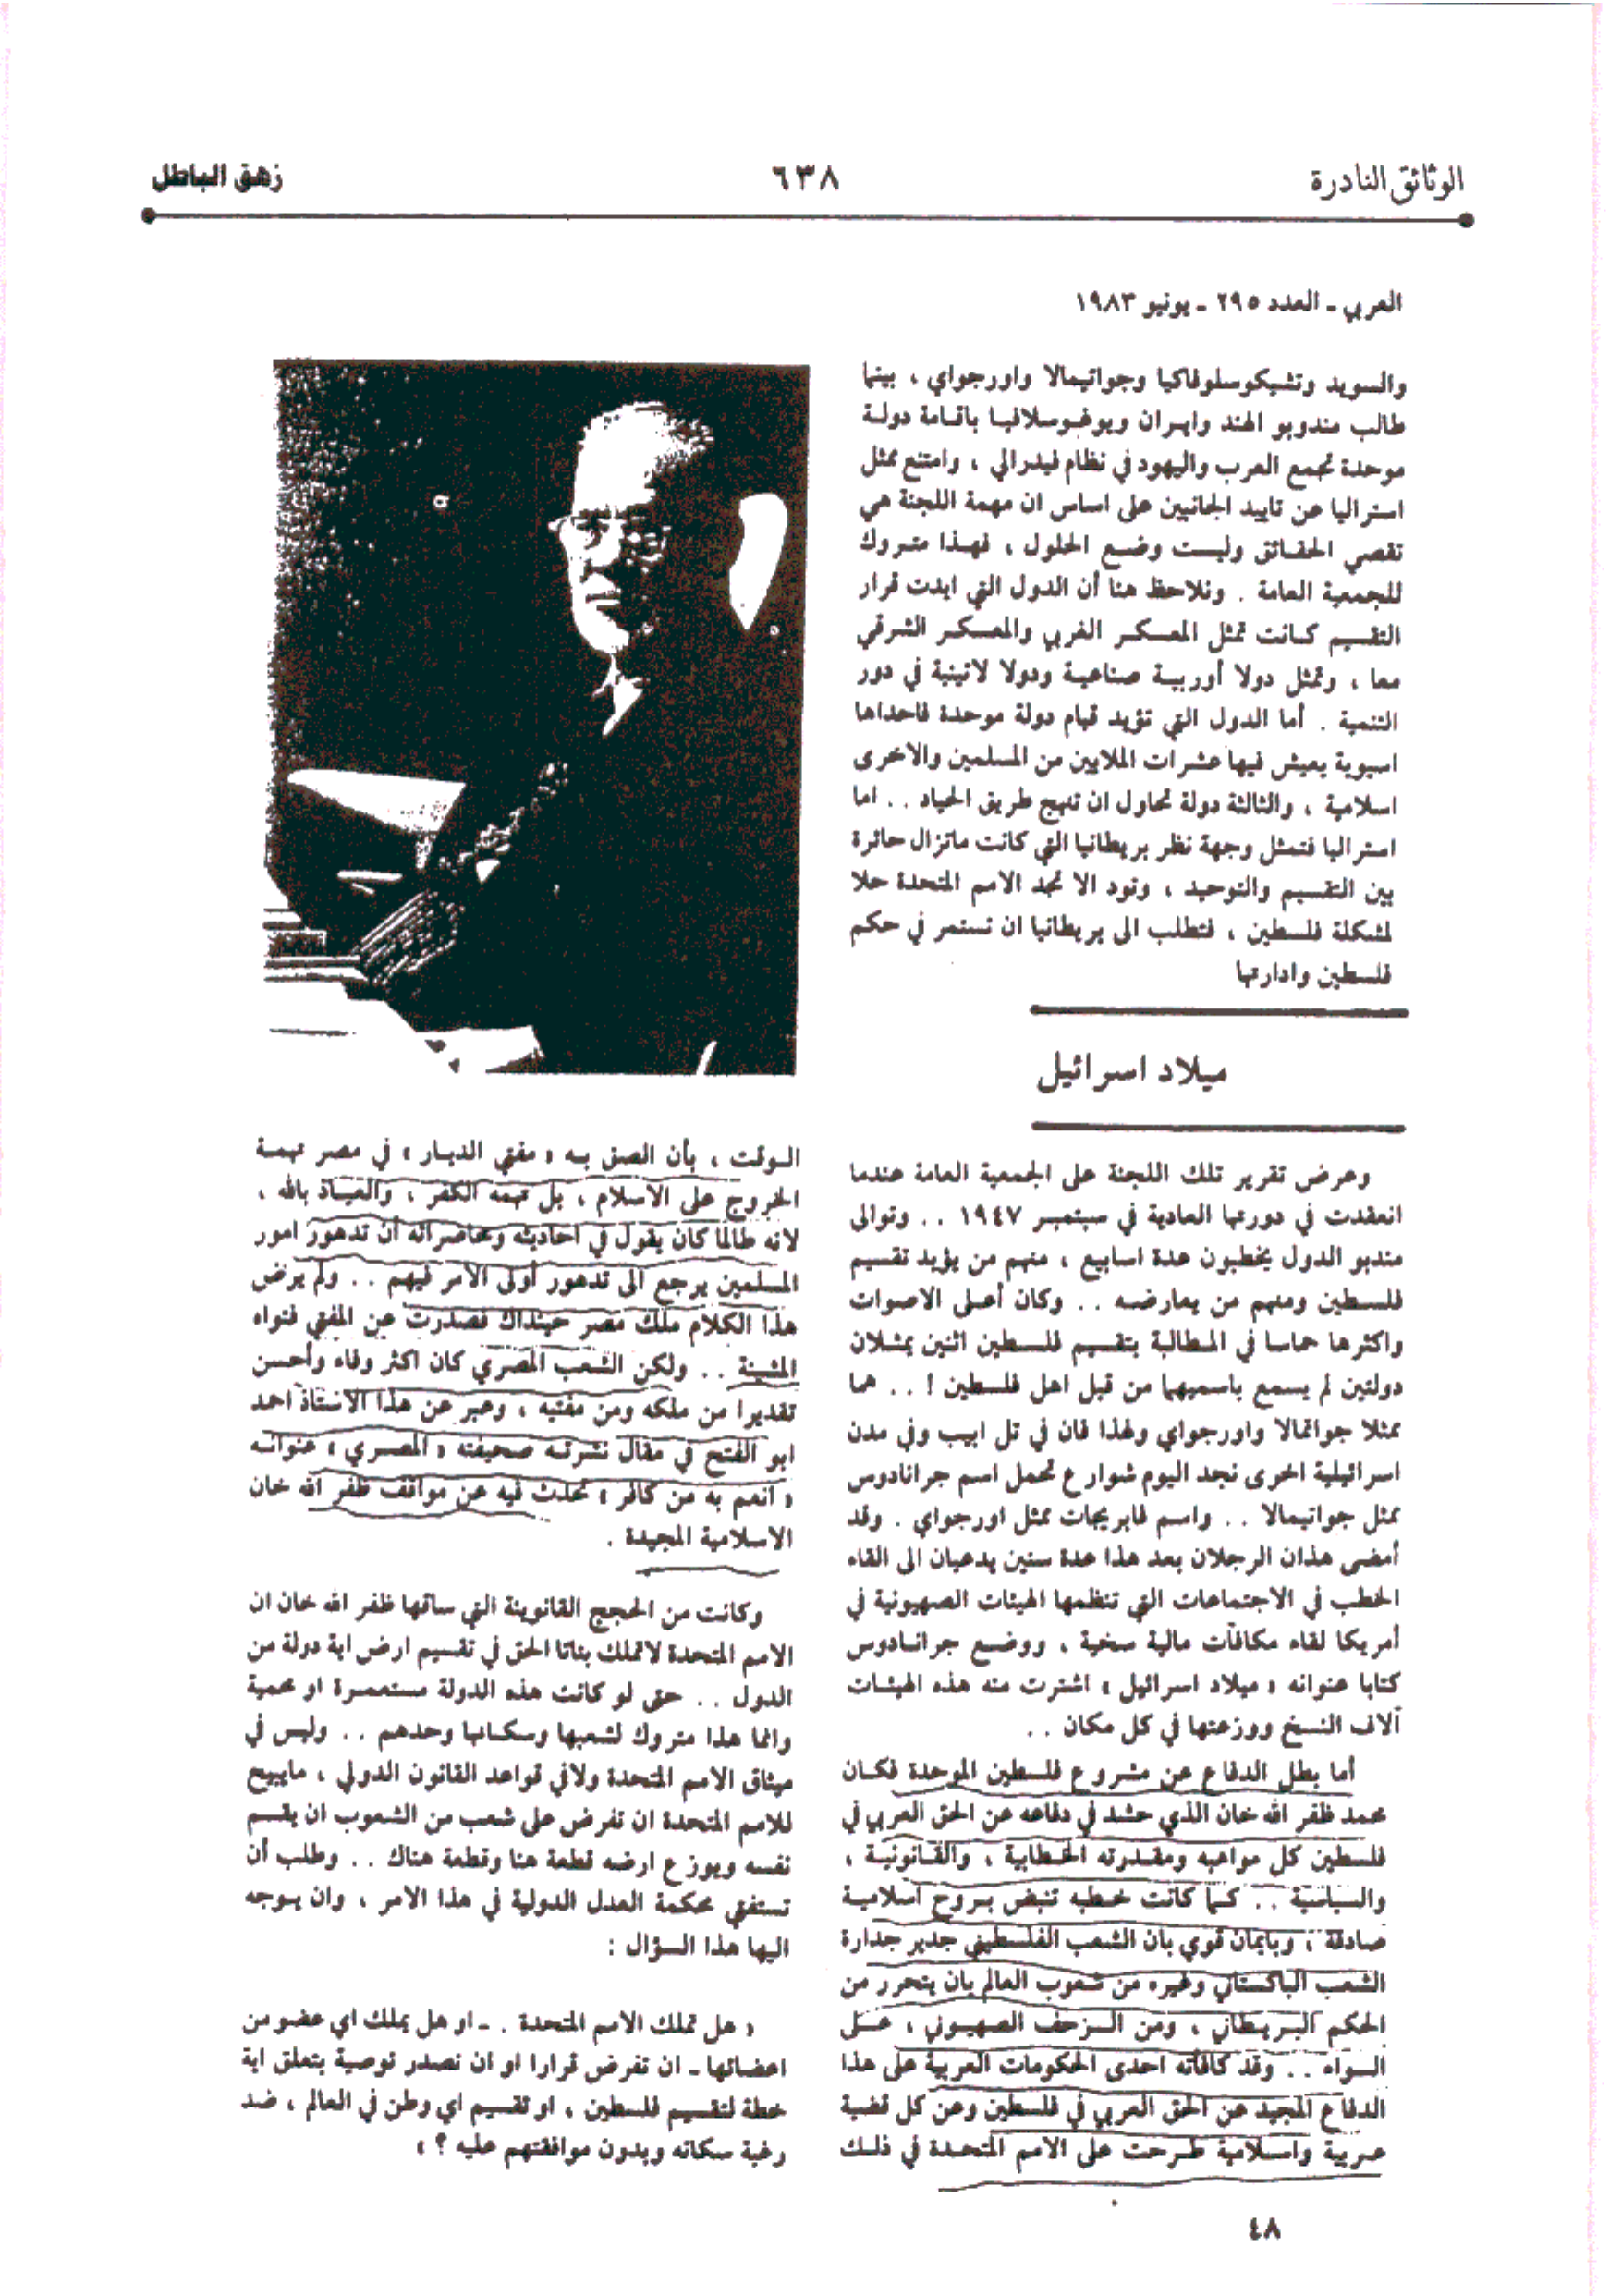 الوثائق النادرة
٦٣٨
زهق الباطل
العربي ـ العدد ٢٩٥ ـ يونيو ١٩٨٣
والسويد وتشيكوسلوفاكيا وجواتيمالا واورجواي ، بينما
طالب مندوبو الهند وايران ويوغوسلافيا باقامة دولة
موحدة تجمع العرب واليهود في نظام فيدرالي ، وامتنع ممثل
استراليا عن تاييد الجانبين على اساس ان مهمة اللجنة هي
تقصي الحقائق وليست وضع الحلول ، فهذا متروك
للجمعية العامة . ونلاحظ هنا أن الدول التي ايدت قرار
التقسيم كانت تمثل المعسكر الغربي والمعسكر الشرقي
معا ، وتمثل دولا أوربية صناعية ودولا لاتينية في دور
التنمية . أما الدول التي تؤيد قيام دولة موحدة فاحداها
اسيوية يعيش فيها عشرات الملايين من المسلمين والاخرى
اسلامية ، والثالثة دولة تحاول ان تنهج طريق الحياد . . اما
استراليا فتمثل وجهة نظر بريطانيا التي كانت ماتزال حائرة
بين التقسيم والتوحيد ، وتود الا تجد الامم المتحدة حلا
لمشكلة فلسطين ، فتطلب الى بريطانيا ان تستمر في حكم
فلسطين وادارتها
ميلاد اسرائيل
وعرض تقرير تلك اللجنة على الجمعية العامة عندما
انعقدت في دورتها العادية في سبتمبر ١٩٤٧ . . وتوالى
مندبو الدول يخطبون عدة اسابيع ، منهم من يؤيد تقسيم
فلسطين ومنهم من يعارضه . . وكان أعلى الاصوات
واكثرها حماسا في المطالبة بتقسيم فلسطين اثنين يمثلان
دولتين لم يسمع باسميهما من قبل اهل فلسطين ! . . هما
ممثلا جواتمالا واورجواي ولهذا فان في تل ابيب وفي مدن
اسرائيلية اخرى نجد اليوم شوارع تحمل اسم جرانادوس
ممثل جواتيمالا . . واسم فابريجات ممثل اورجواي . وقد
أمضى هذان الرجلان بعد هذا عدة سنين يدعيان الى القاء
الخطب في الاجتماعات التي تنظمها الهيئات الصهيونية في
أمريكا لقاء مكافآت مالية سخية ، ووضع جرانادوس
كتابا عنوانه « ميلاد اسرائيل » اشترت منه هذه الهيئات
آلاف النسخ ووزعتها في كل مكان . .
أما بطل الدفاع عن مشروع فلسطين الموحدة فكان
محمد ظفر الله خان الذي حشد في دفاعه عن الحق العربي في
فلسطين كل مواهبه ومقدرته الخطابية ، والقانونية ،
والسياسية . . كما كانت خطبه تنبض بروح اسلامية
صادقة ، وبايمان قوي بان الشعب الفلسطيني جدير جدارة
الشعب الباكستاني وغيره من شعوب العالم بان يتحرر من
الحكم البريطاني ، ومن الزحف الصهيوني ، على
السواء . . وقد كافأته احدى الحكومات العربية على هذا
الدفاع المجيد عن الحق العربي في فلسطين وعن كل قضية
عربية واسلامية طرحت على الامم المتحدة في ذلك
الوقت ، بأن الصق به « مفتي الديار » في مصر تهمة
الخروج على الاسلام ، بل تهمه الكفر ، والعياذ بالله ،
لانه طالما كان يقول في احاديثه ومحاضراته أن تدهور امور
المسلمين يرجع الى تدهور أولى الامر فيهم . . ولم يرض
هذا الكلام ملك مصر حينذاك فصدرت عن المفتي فتواه
المشينة . . ولكن الشعب المصري كان اكثر وفاء وأحسن
تقديرا من ملكه ومن مفتيه ، وعبر عن هذا الاستاذ احمد
ابو الفتح في مقال نشرته صحيفته « المصري » عنوانه
« أنعم به من كافر » تحدث فيه عن مواقف ظفر الله خان
الاسلامية المجيدة .
وكانت من الحجج القانوينة التي ساقها ظفر الله خان ان
الامم المتحدة لاتملك بتاتا الحق في تقسيم ارض اية دولة من
الدول . . حتى لو كانت هذه الدولة مستعمرة او محمية
وانما هذا متروك لشعبها وسكانها وحدهم . . وليس في
ميثاق الامم المتحدة ولافي قواعد القانون الدولي ، مايبيح
للامم المتحدة ان تفرض على شعب من الشعوب ان يقسم
نفسه ويوزع ارضه قطعة هنا وقطعة هناك . . وطلب أن
تستفتي محكمة العدل الدولية في هذا الامر ، وان يوجه
اليها هذا السؤال :
« هل تملك الامم المتحدة . ـ او هل يملك اي عضو من
اعضائها ـ ان تفرض قرارا او ان تصدر توصية بتعلق اية
خطة لتقسيم فلسطين ، او تقسيم اي وطن في العالم ، ضد
رغبة سكانه وبدون موافقتهم عليه ؟ »
٤٨